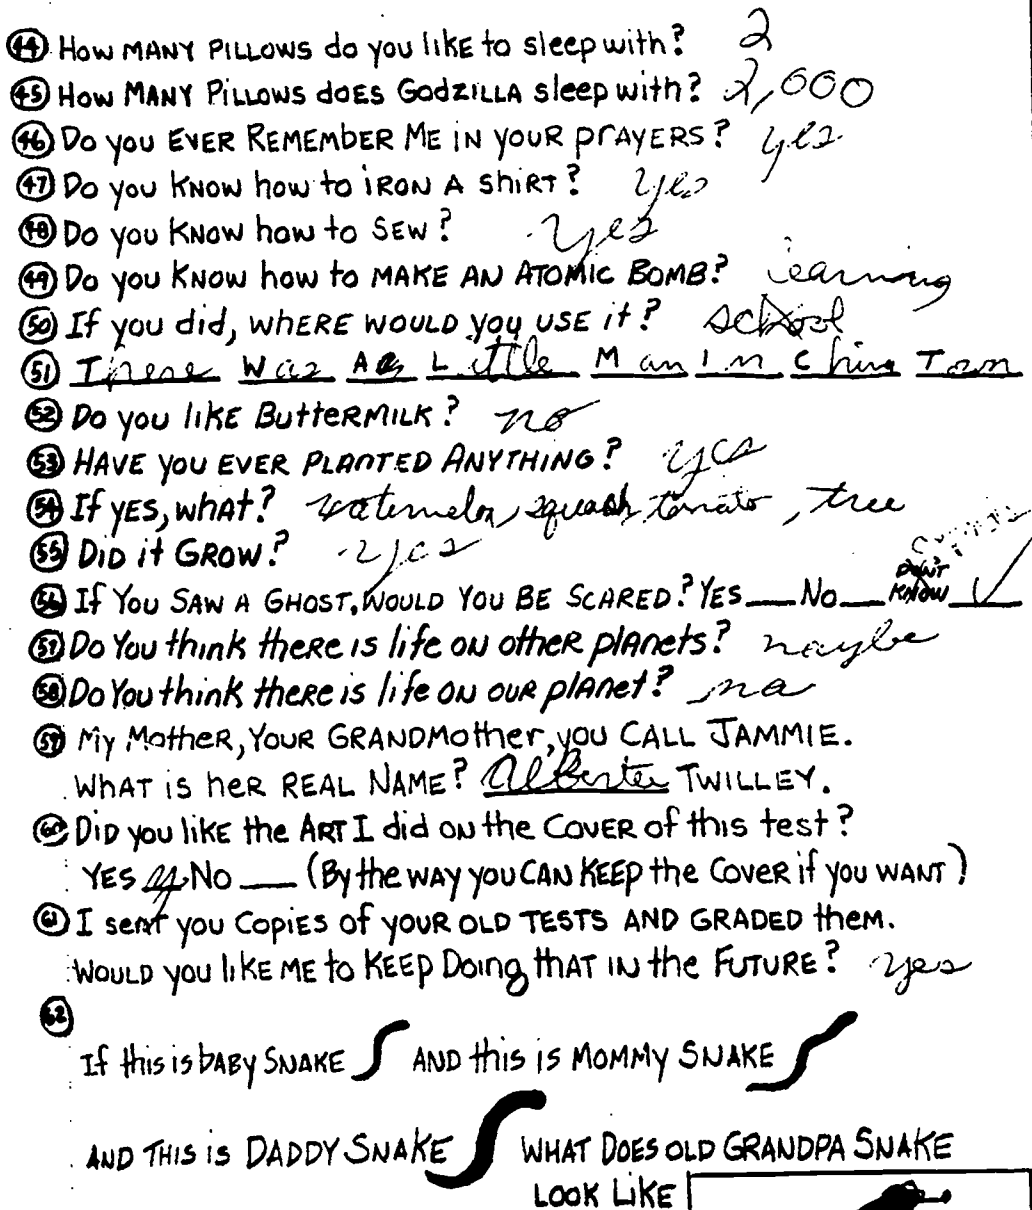 44 How MANY PILLOWS do you like to sleep with? 2
45 How MANY PILLOWS does GODZILLA sleep with? 2,000
46 Do you EVER REMEMBER ME iN YOUR PRAYERS? yes
47 Do you KNOW how to iRON A shiRT? yes
48 Do you KNOW how to SEW? yes
49 Do you KNOW how to MAKE AN ATOMIC BOMB? learning
50 If you did, WHERE WOULD you USE it? school
51 There Was A Little Man In China Town
52 Do you likE ButteRMILK? no
53 HAVE you EVER PLANTED ANYTHING? yes
54 If YES, whAt? watermelon, squash, tomato, tree
55 DiD it GROW? yes
56 If YOU SAW A GHOST, WOULD YOU BE SCARED? YES No DON'T KNOW ✓
57 Do You think theRE is life ON otheR plANets? maybe
58 Do You think theRE is life ON OUR plANet? na
59 My Mother, YOUR GRANDMother, you CALL JAMMIE.
WHAT is heR REAL NAME? Alberta TWILLEY.
60 DiD you like the ART I did ON the COVER of this test?
YES y No (By the WAY you CAN KEEP the COVER if you WANT)
61 I sent you COPiES of YOUR OLD TESTS AND GRADED them.
WOULD you likE ME to KEEP Doing thAT iN the FUTURE? yes
62
If this is bABy SNAKE AND this is MOMMY SNAKE
AND THiS is DADDY SNAKE WHAT DOES OLD GRANDPA SNAKE
LOOK LiKE